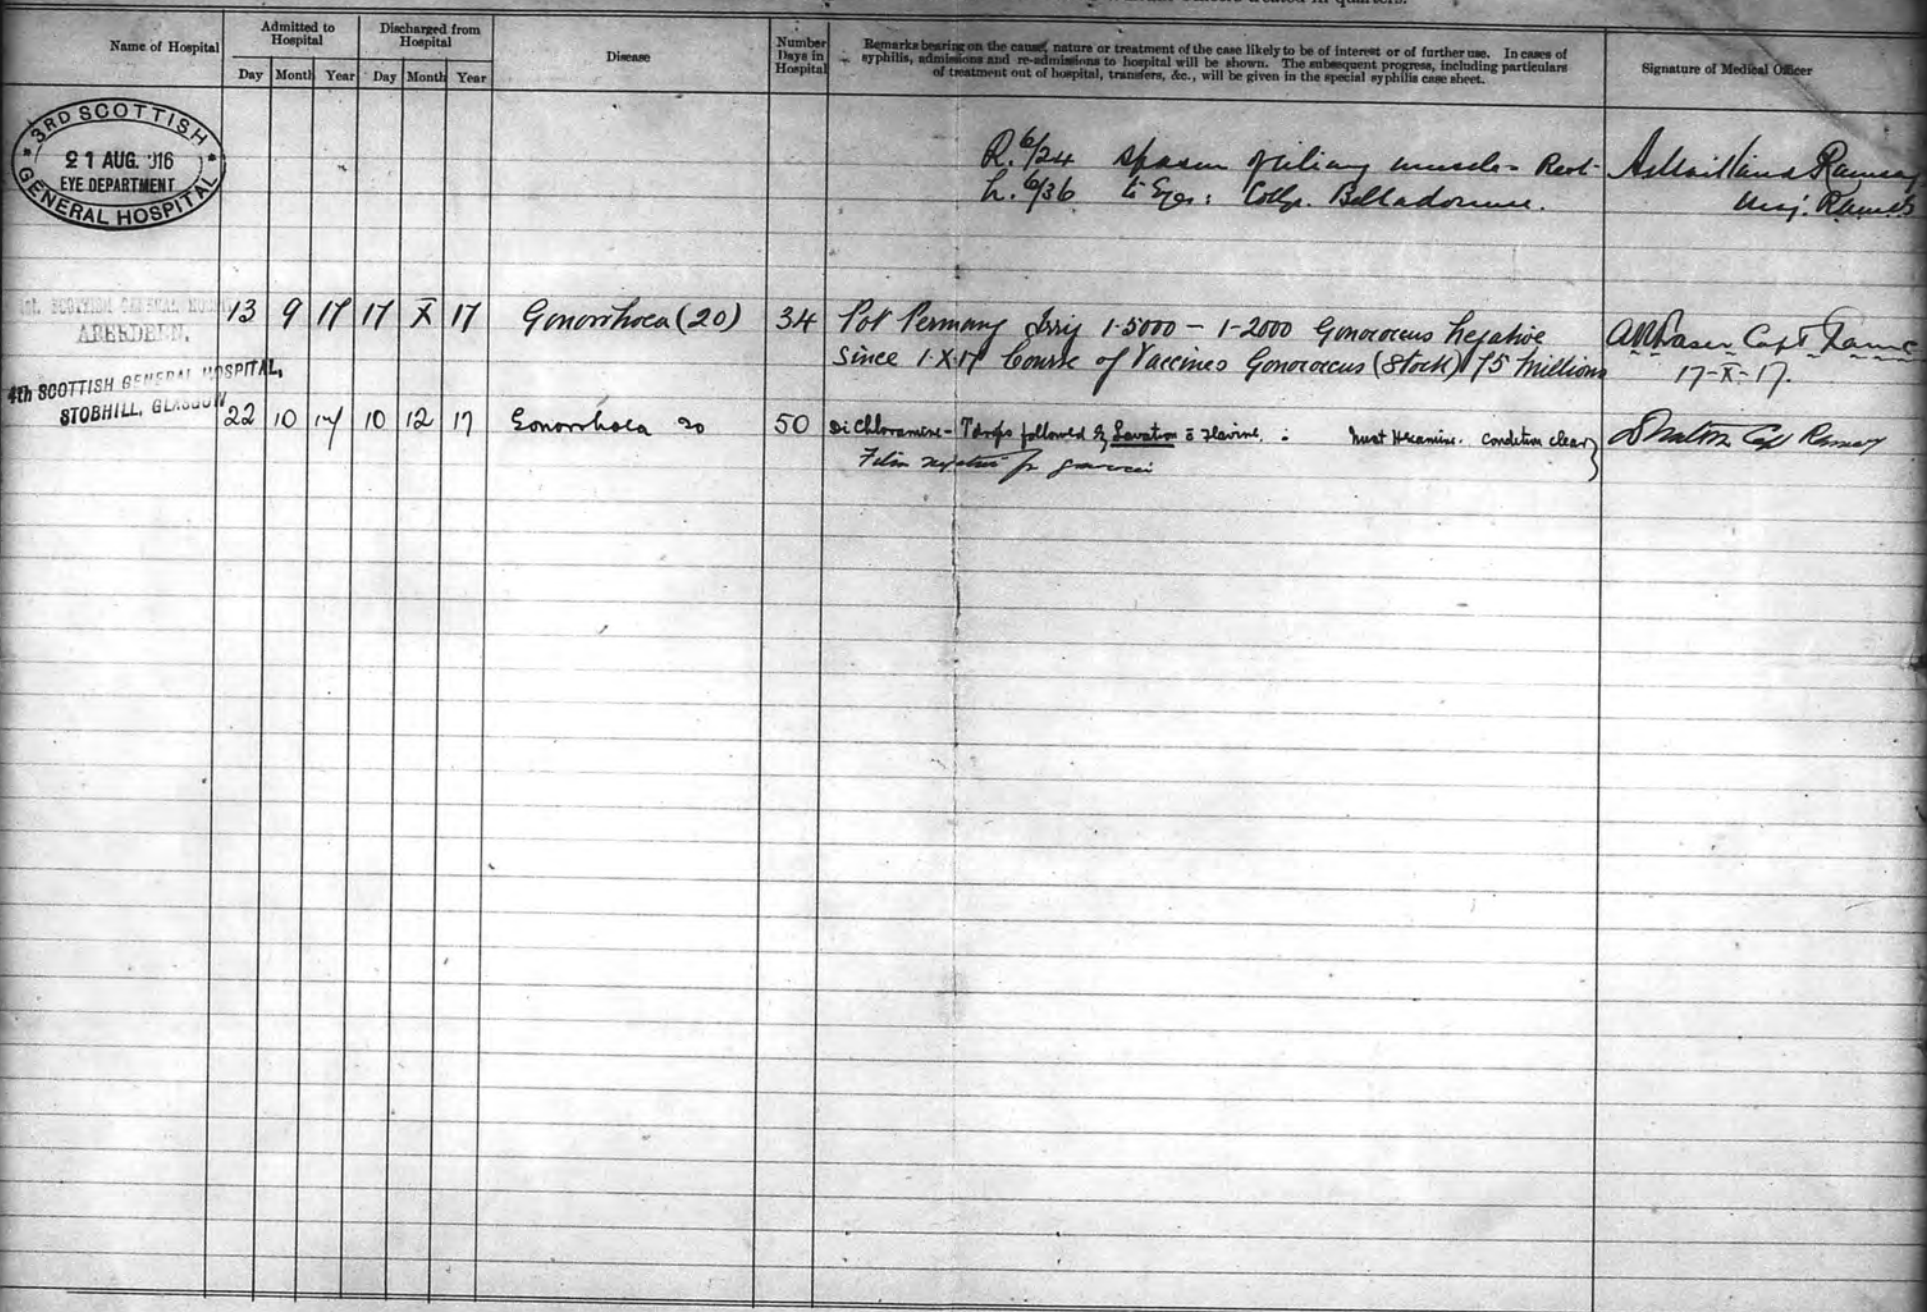 treated in quarters.
Name of Hospital
Admitted to Hospital
Discharged from Hospital
Disease
Number Days in Hospital
Remarks bearing on the cause, nature or treatment of the case likely to be of interest or of further use. In cases of
syphilis, admissions and re-admissions to hospital will be shown. The subsequent progress, including particulars
of treatment out of hospital, transfers, &c., will be given in the special syphilis case sheet.
Signature of Medical Officer
Day Month Year Day Month Year
3RD SCOTTISH
21 AUG. 916
EYE DEPARTMENT
GENERAL HOSPITAL
R. 6/24 Spasm of ciliary muscle - Rest
L. 6/36 to Eyes: Belladonna.
Maitland Ramsay
Maj.
1st. SCOTTISH GENERAL
ABERDEEN.
13 9 17 17 X 17 Gonorrhoea (20) 34 Pot Permang Irrig 1-5000 - 1-2000 Gonococcus Negative
Since 1.X.17 Course of Vaccines Gonococcus (Stock) 75 Millions
Fraser Capt
17-X-17.
4th SCOTTISH GENERAL HOSPITAL,
STOBHILL, GLASGOW
22 10 17 10 12 17 Gonorrhoea 20 50 Di Chloramine - T drops followed by Lavation c̄ Flavine. : Condition clear
Film negative for gonococci
Capt